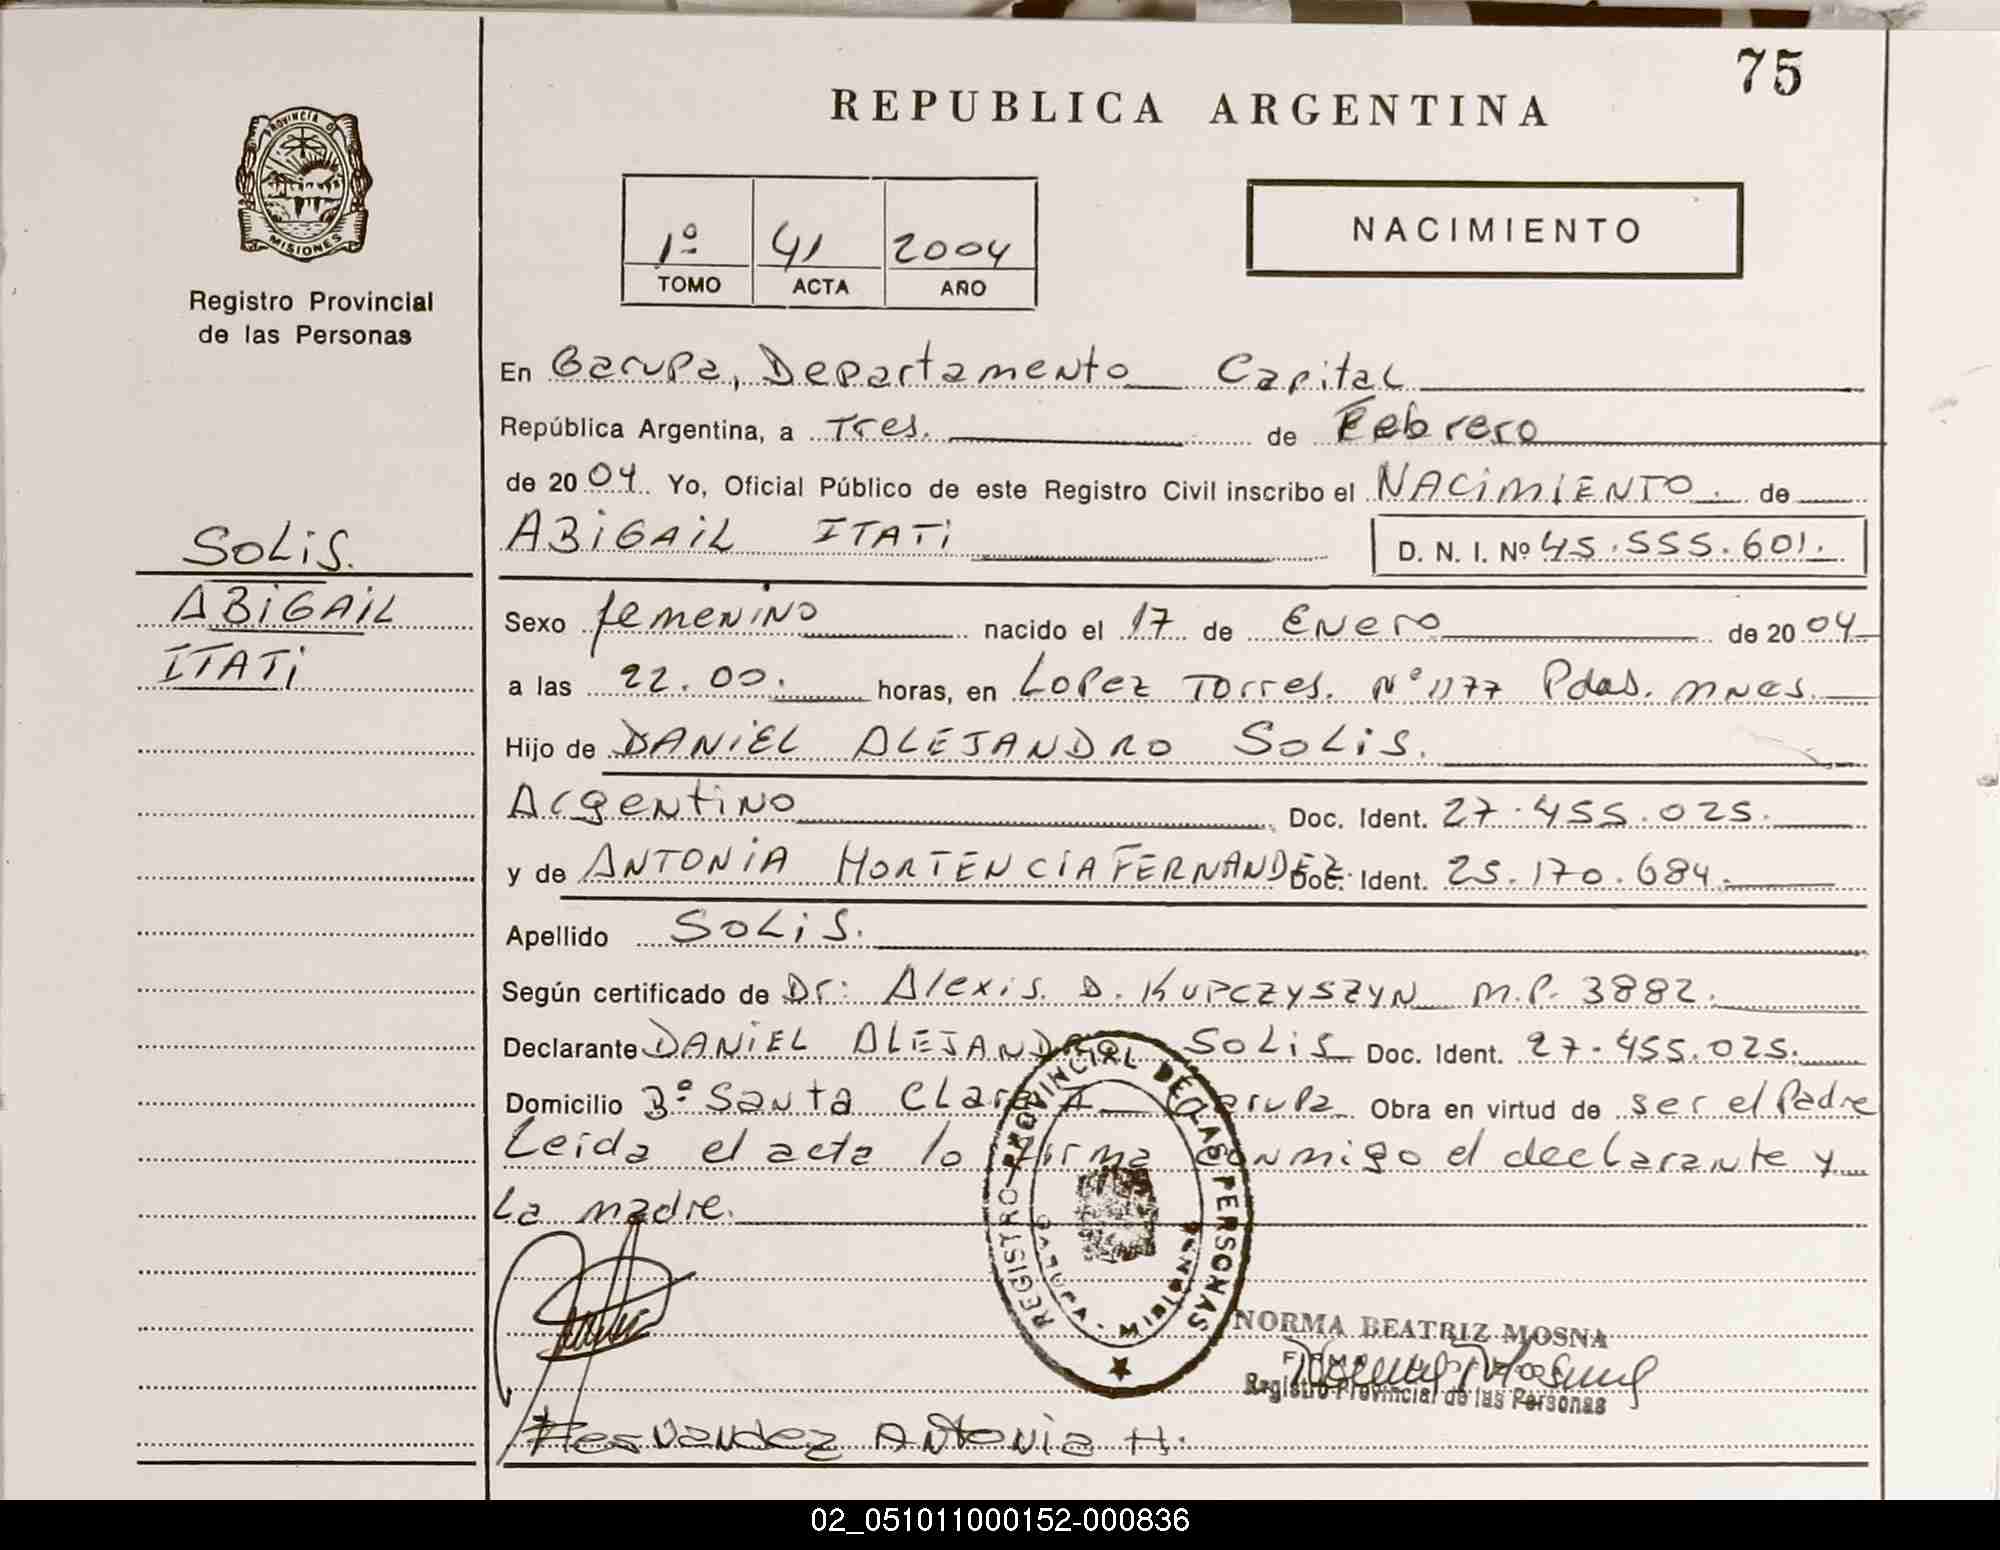 75
REPUBLICA ARGENTINA
PROVINCIA DE
MISIONES
Registro Provincial
de las Personas
1º 41 2004
TOMO ACTA AÑO
NACIMIENTO
En Garupa, Departamento Capital
República Argentina, a Tres. de Febrero
de 2004. Yo, Oficial Público de este Registro Civil inscribo el NACIMIENTO. de
ABIGAIL ITATI D. N. I. Nº 45.555.601.
SOLIS.
ABIGAIL
ITATI
Sexo femenino nacido el 17 de Enero de 2004
a las 22.00. horas, en Lopez Torres. Nº 1177 Pdas. MNES.
Hijo de DANIEL ALEJANDRO SOLIS.
Argentino Doc. Ident. 27.455.025.
y de ANTONIA HORTENCIA FERNANDEZ. Doc. Ident. 25.170.684.
Apellido SOLIS.
Según certificado de Dr: Alexis. D. KUPCZYSZYN M.P. 3882.
Declarante DANIEL ALEJANDRO SOLIS Doc. Ident. 27.455.025.
Domicilio Bº Santa Clara Garupa Obra en virtud de ser el Padre
Leida el acta lo firma conmigo el declarante y
La madre.
REGISTRO PROVINCIAL DE LAS PERSONAS
GARUPA - MISIONES
NORMA BEATRIZ MOSNA
Registro Provincial de las Personas
Fernandez Antonia H.
02_051011000152-000836